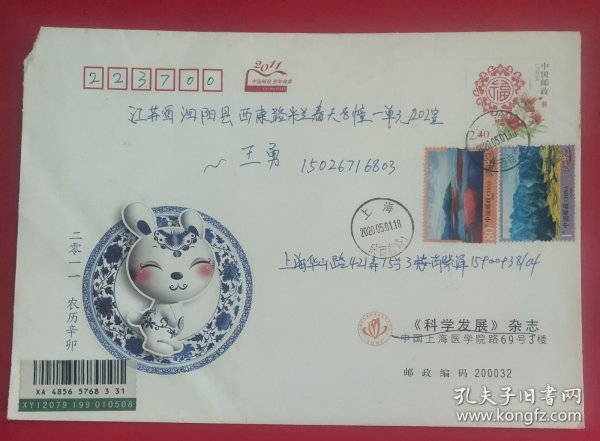 223700
2011
中国邮政 贺年有奖
CHINA POST
中国邮政
2.40元
江苏省泗阳县西康路米兰春天8幢一单元202室
王勇 15026716803
上海
2020.05.01.18
中国邮政 CHINA
80分
中国邮政 CHINA
上海华山路421弄15号3楼
15900938104
二〇一一 农历辛卯
《科学发展》杂志
中国上海医学院路69号3楼
邮政编码 200032
XA 4856 5768 3 31
XY12079 199 010508
孔夫子旧书网
www.kongfz.com